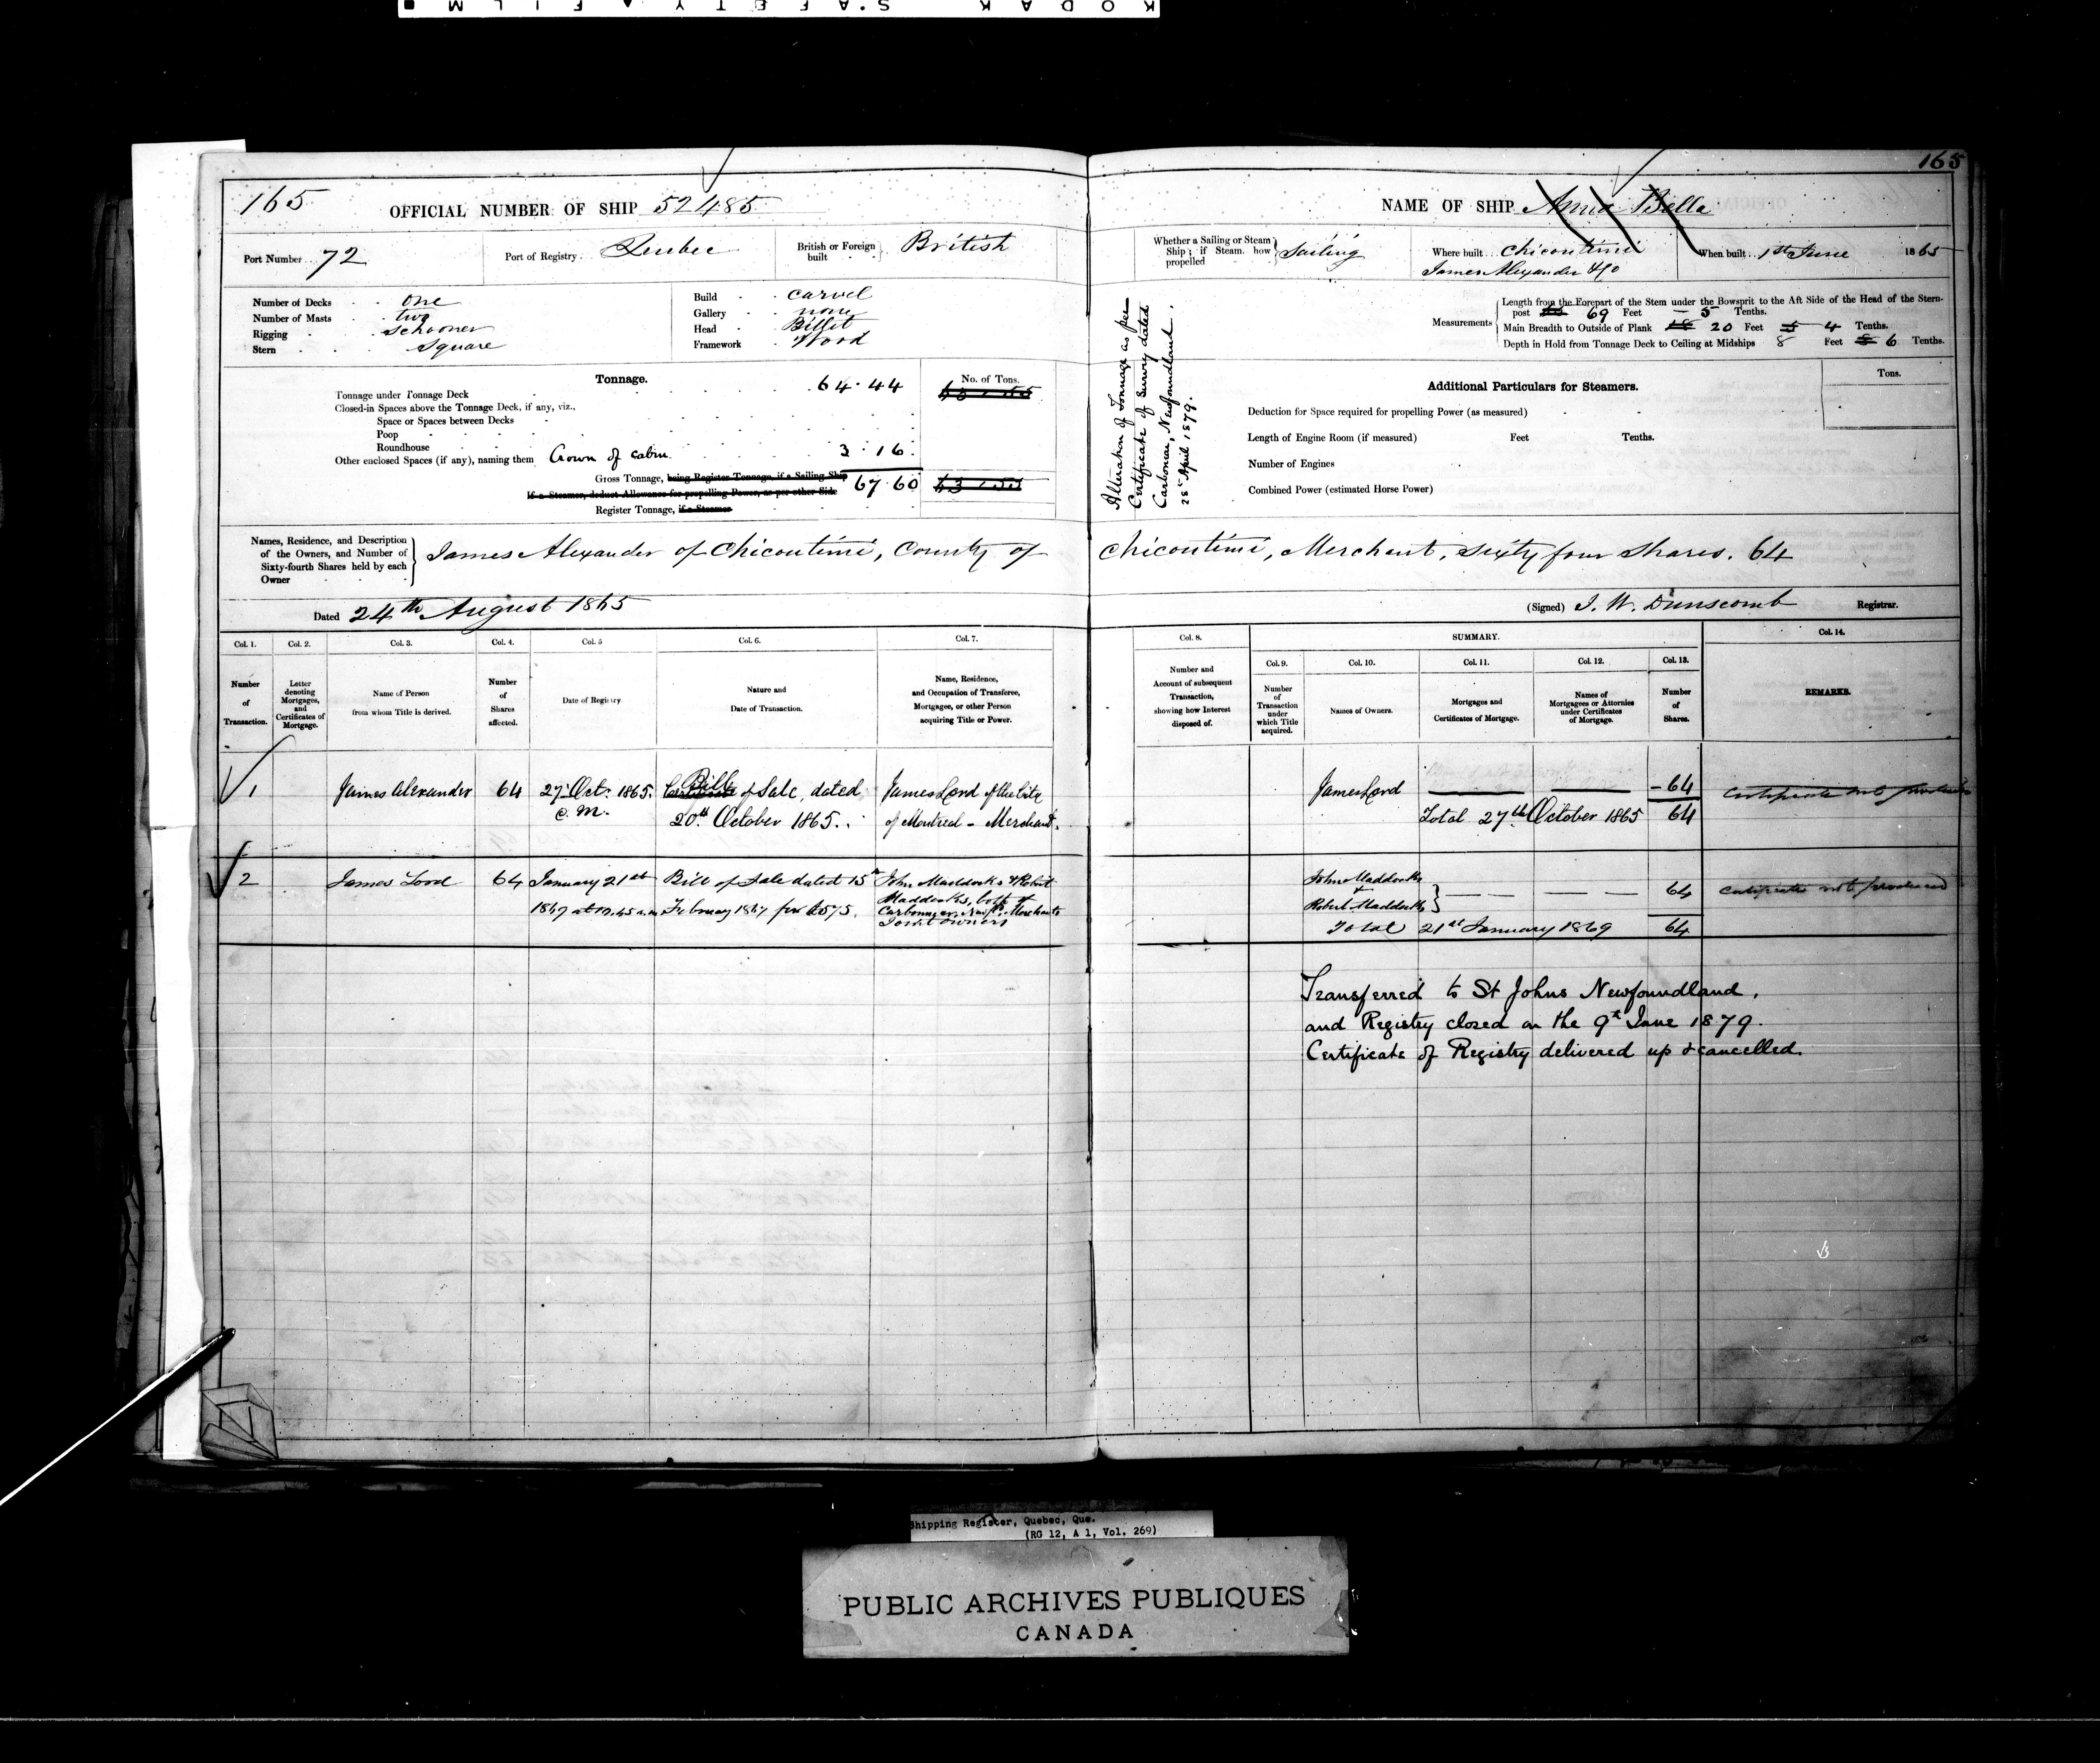 KODAK SAFETY FILM
165
165
OFFICIAL NUMBER OF SHIP 52485
NAME OF SHIP Anna Bella
Port Number 72
Port of Registry Quebec
British or Foreign built British
Whether a Sailing or Steam Ship; if Steam, how propelled Sailing
Where built Chicoutimi
James Alexander &Co
When built 1st June 1865
Number of Decks one
Number of Masts two
Rigging Schooner
Stern Square
Build Carvel
Gallery none
Head Billet
Framework Wood
Measurements
Length from the Forepart of the Stem under the Bowsprit to the Aft Side of the Head of the Stern-
post 69 Feet 5 Tenths.
Main Breadth to Outside of Plank 20 Feet 4 Tenths.
Depth in Hold from Tonnage Deck to Ceiling at Midships 8 Feet 6 Tenths.
Tonnage.
No. of Tons.
Tonnage under Tonnage Deck 64.44
Closed-in Spaces above the Tonnage Deck, if any, viz.,
Space or Spaces between Decks
Poop
Roundhouse
Other enclosed Spaces (if any), naming them Crown of cabin 3.16
Gross Tonnage, being Register Tonnage, if a Sailing Ship 67.60
If a Steamer, deduct Allowance for propelling Power, as per other Side
Register Tonnage, if a Steamer
Alteration of Tonnage as per
Certificate of Survey dated
Carbonear, Newfoundland.
25 April 1879.
Additional Particulars for Steamers.
Tons.
Deduction for Space required for propelling Power (as measured)
Length of Engine Room (if measured) Feet Tenths.
Number of Engines
Combined Power (estimated Horse Power)
Names, Residence, and Description
of the Owners, and Number of
Sixty-fourth Shares held by each
Owner
James Alexander of Chicoutimi, County of Chicoutimi, Merchant, Sixty four Shares. 64
Dated 24th August 1865
(Signed) J. W. Dunscomb Registrar.
Col. 1. Col. 2. Col. 3. Col. 4. Col. 5 Col. 6. Col. 7.
Number of Transaction.
Letter denoting Mortgages, and Certificates of Mortgage.
Name of Person from whom Title is derived.
Number of Shares affected.
Date of Registry.
Nature and Date of Transaction.
Name, Residence, and Occupation of Transferee, Mortgagee, or other Person acquiring Title or Power.
Col. 8. SUMMARY. Col. 14.
Col. 9. Col. 10. Col. 11. Col. 12. Col. 13.
Number and Account of subsequent Transaction, showing how Interest disposed of.
Number of Transaction under which Title acquired.
Names of Owners.
Mortgages and Certificates of Mortgage.
Names of Mortgagees or Attornies under Certificates of Mortgage.
Number of Shares.
REMARKS.
1 James Alexander 64 27 Oct. 1865. Bill of Sale, dated James Lord of the City
20th October 1865. of Montreal - Merchant.
James Lord 64 Certificate not produced
Total 27th October 1865 64
2 James Lord 64 January 21st Bill of Sale dated 15th John Maddocks & Robert
Maddocks, both of
February 1867 for £575. Carbonear, Newfld, Merchants
Joint owners
John Maddocks
&
Robert Maddocks 64 Certificate not produced
Total 21st January 1869 64
Transferred to St Johns Newfoundland,
and Registry closed on the 9th June 1879.
Certificate of Registry delivered up & cancelled.
Shipping Register, Quebec, Que.
(RG 12, A 1, Vol. 269)
PUBLIC ARCHIVES PUBLIQUES
CANADA